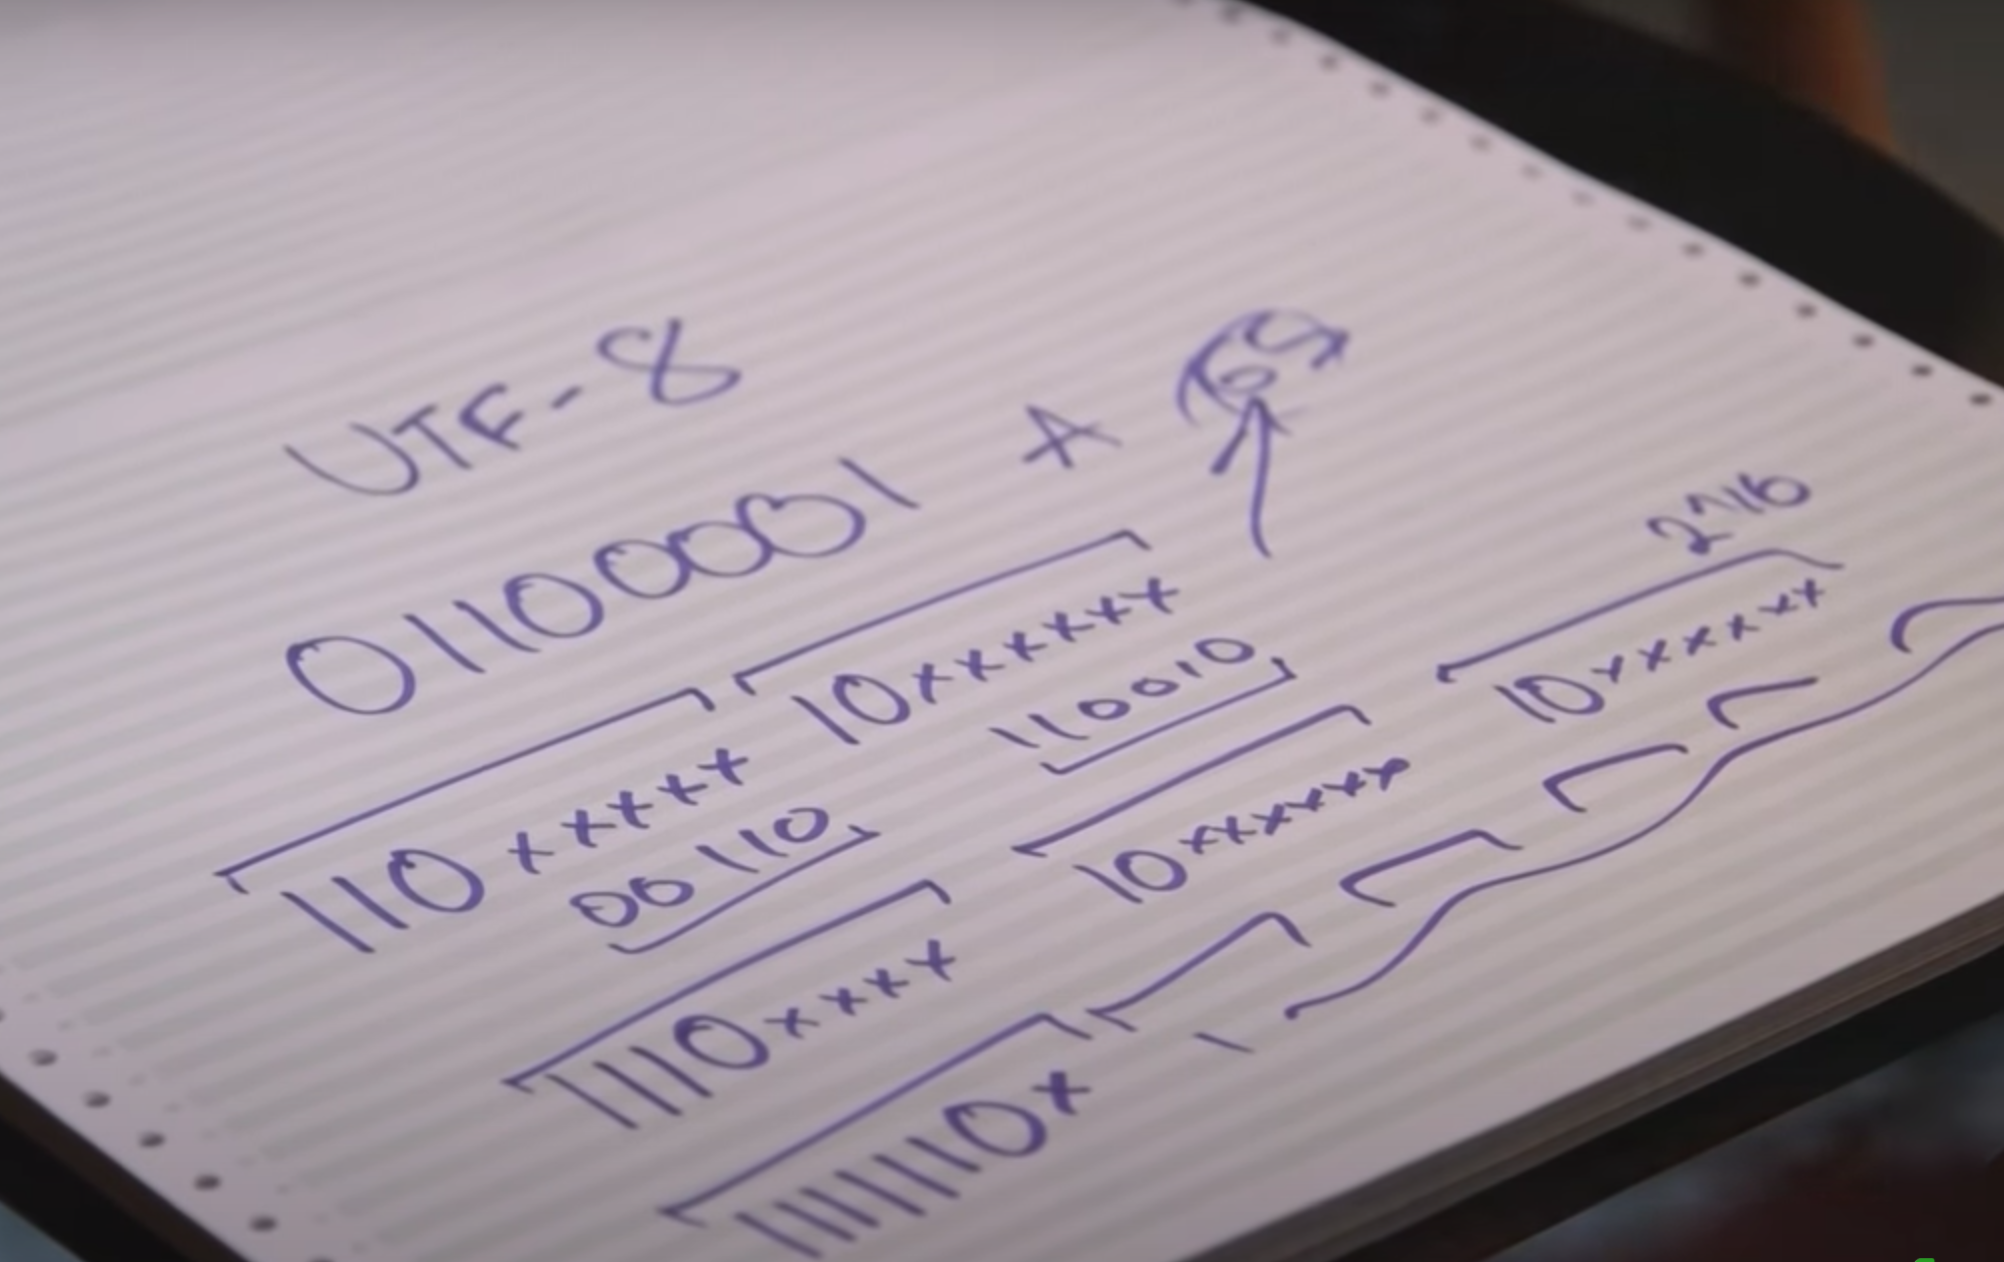 UTF-8
01100001 A (65)
110xxxxx 10xxxxxx
00110 110010
2^16
1110xxxx 10xxxxxx 10xxxxxx
1111110x